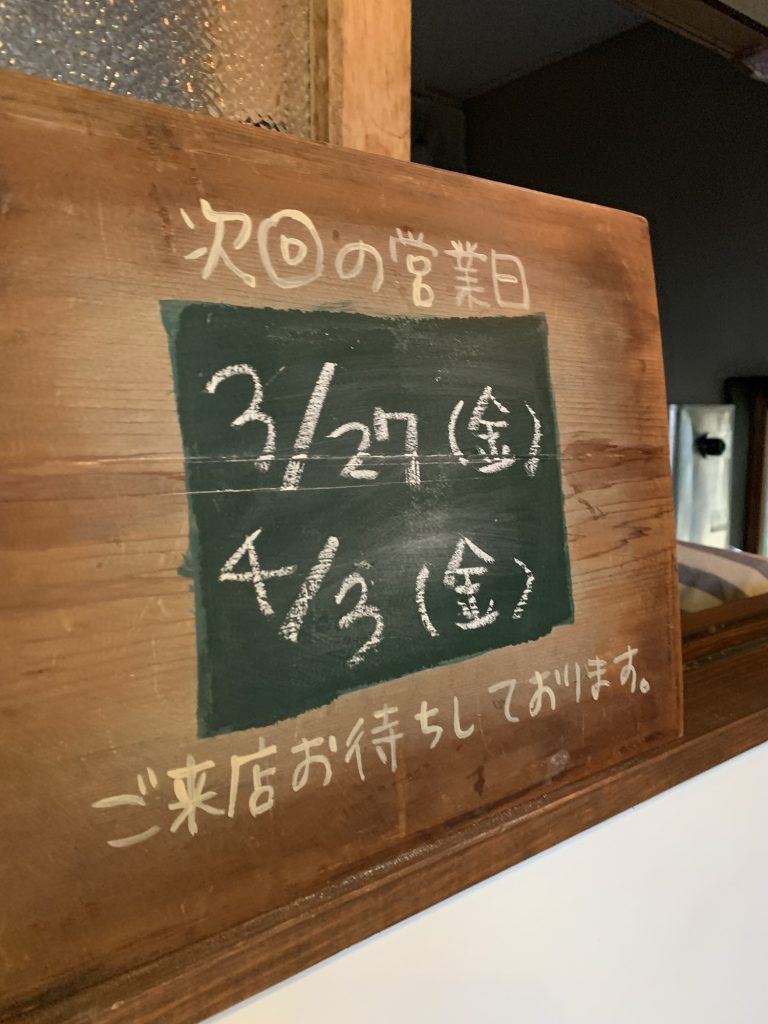 次回の営業日
3/27(金)
4/3(金)
ご来店お待ちしております。